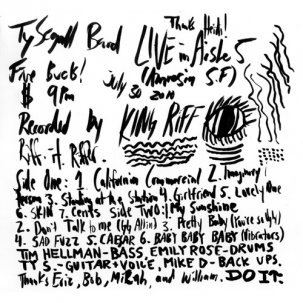 Thanks Heidi!
Ty Segall Band LIVE in Aisle 5
Five Buck! (Amnesia SF)
$ 9PM July 30 2011
Recorded by KING RIFF
Side One: 1. California Commercial 2. Imaginary
Person 3. Standing at the station 4. Girlfriend 5. Lovely One
6. SKIN 7. Cents Side TWO: 1. My Sunshine
2. Don't Talk to me (GG Allin) 3. Pretty Baby (
4. SAD FUZZ 5. CAESAR 6. BABY BABY BABY (Vibrators)
TIM HELLMAN-BASS. EMILY ROSE-DRUMS
TY S.-GUITAR+VOICE, MIKE D-BACK UPS.
Thanks Eric, Bob, Mikah, and William. DO IT.